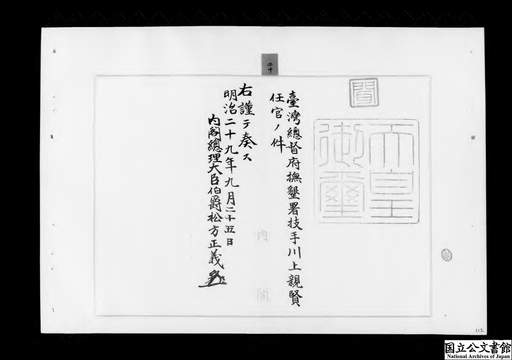 聞
天皇御璽
臺灣總督府撫墾署技手川上親賢
任官ノ件
右謹テ奏ス
明治二十九年九月二十五日
内閣總理大臣伯爵松方正義
内閣
二十
112
国立公文書館
National Archives of Japan